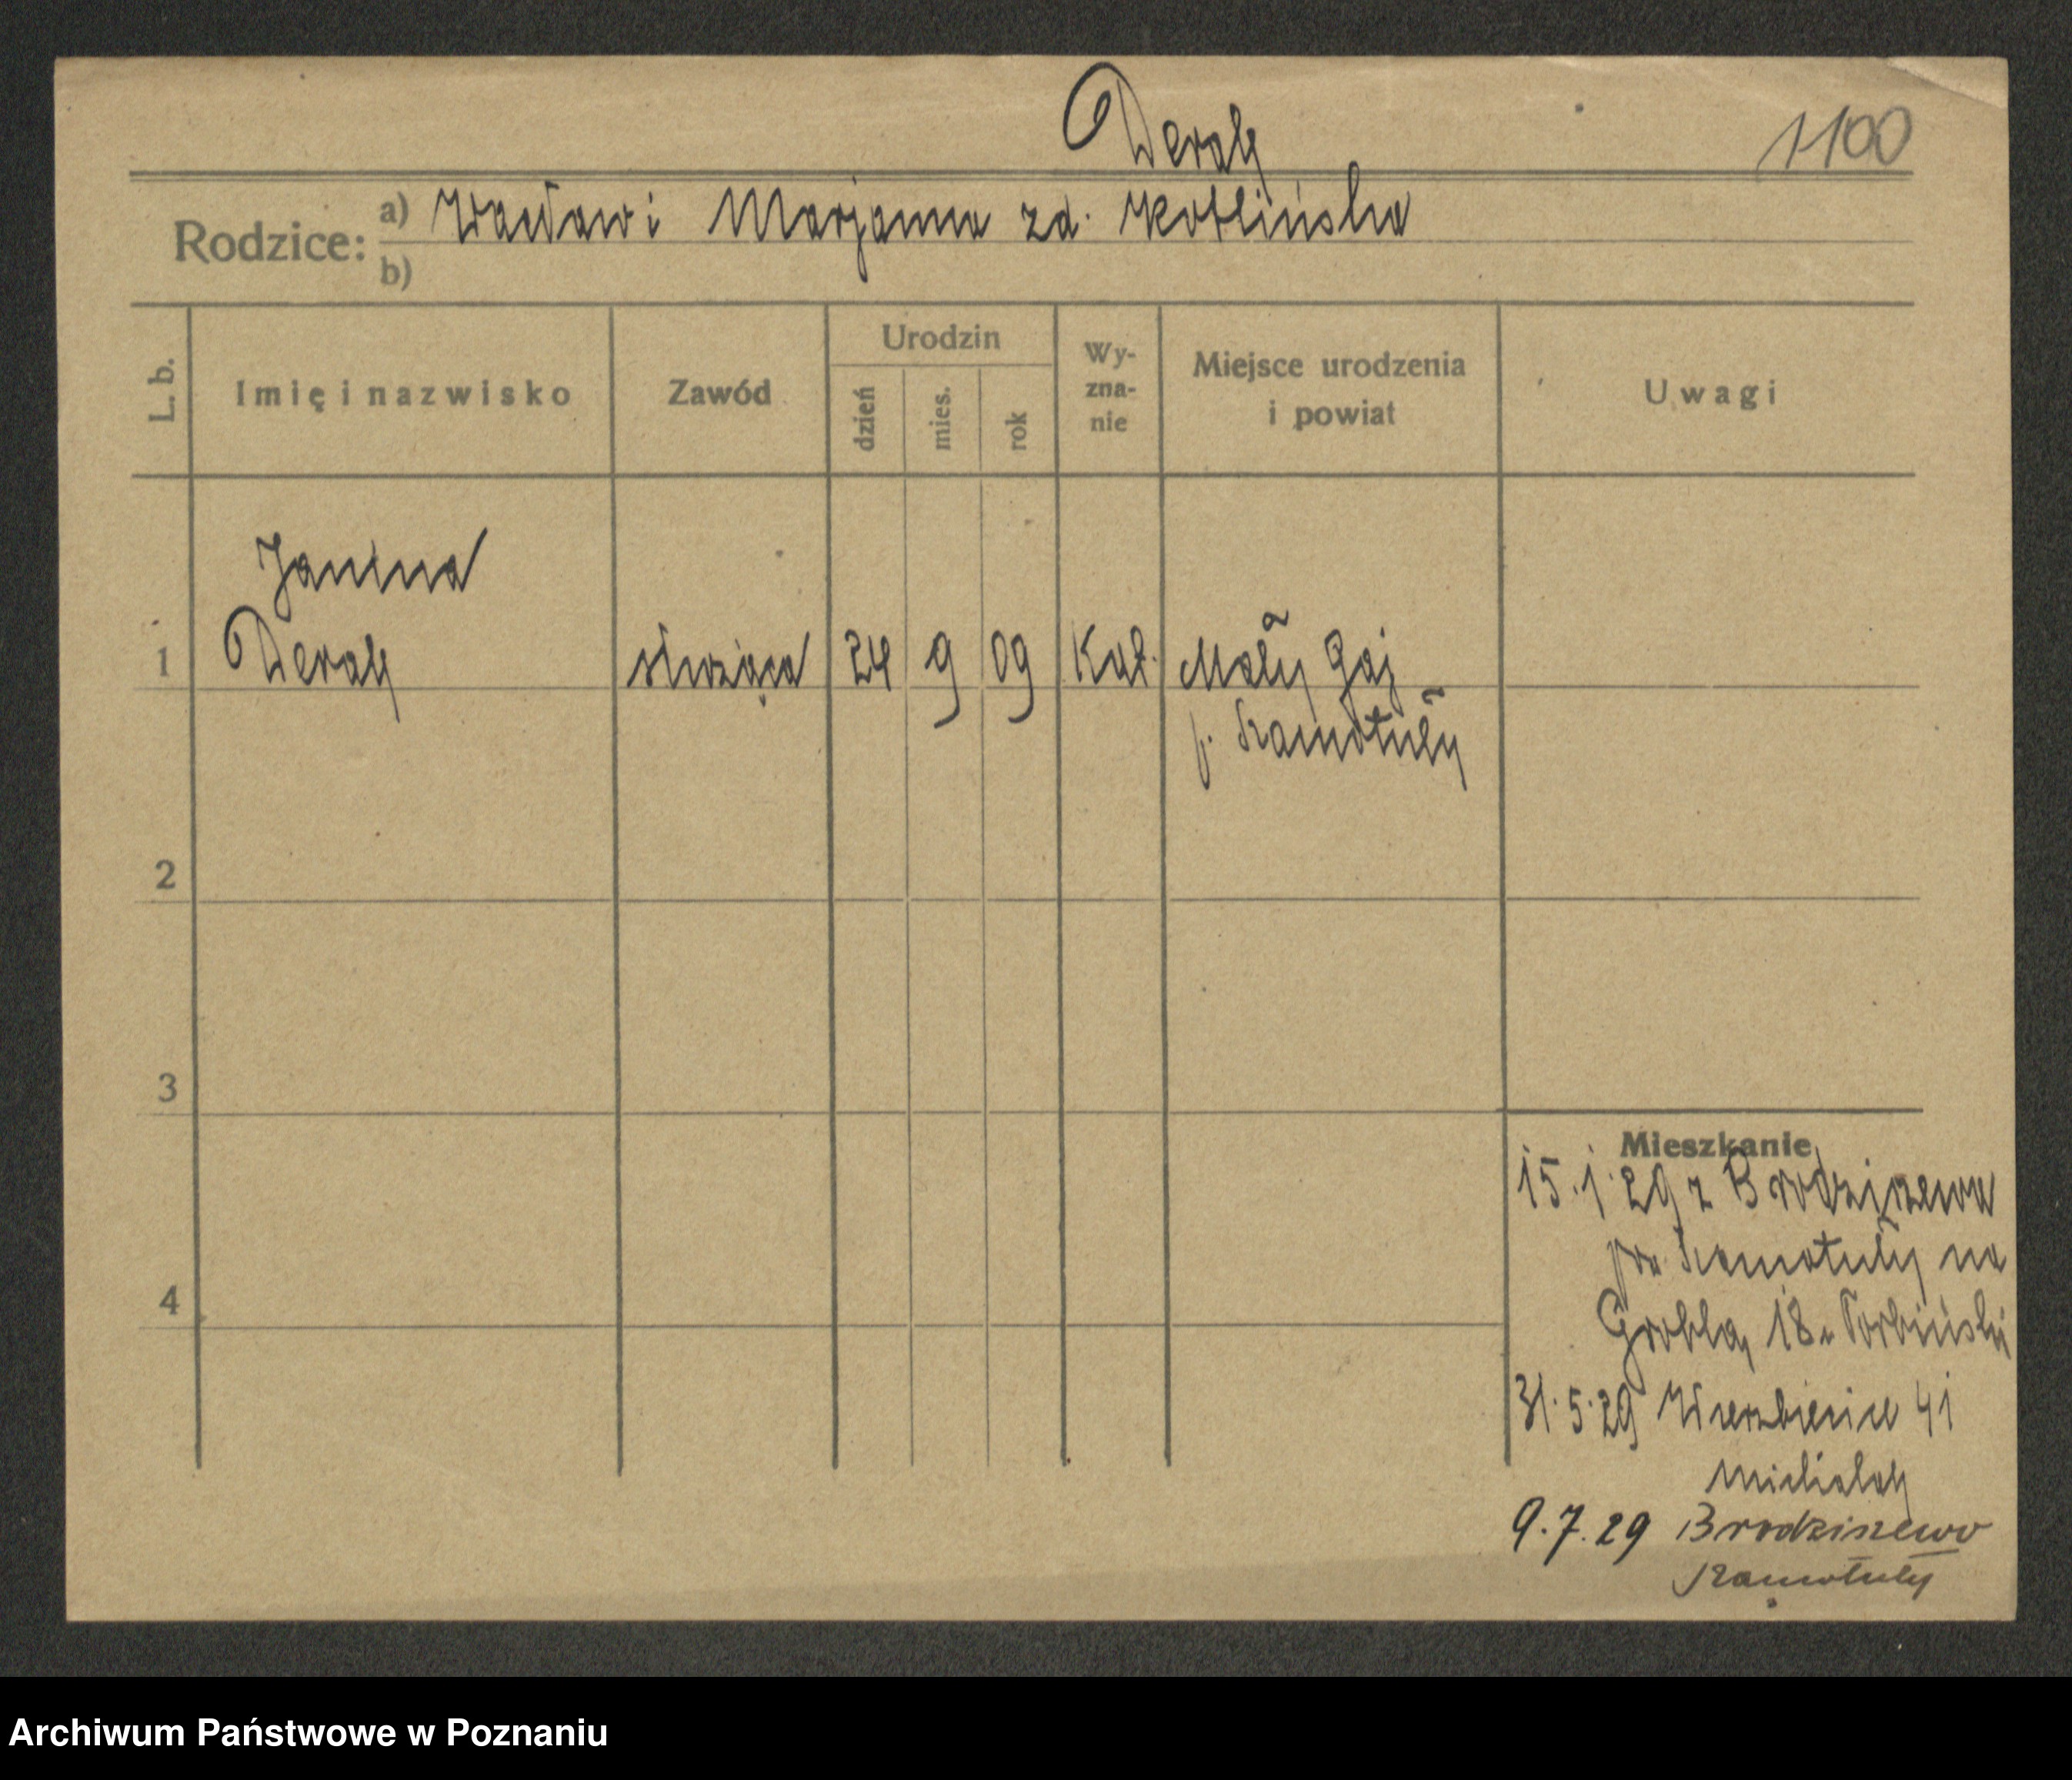 Derak
1100
Rodzice: a) Wacław i Marjanna zd. Kotlińska
b)
L. b.
Imię i nazwisko
Zawód
Urodzin
dzień
mies.
rok
Wy-
zna-
nie
Miejsce urodzenia
i powiat
Uwagi
Janina
1 Derak służąca 24 9 09 Kat. Mały Gaj
p. Szamotuły
2
3
4
Mieszkanie
15.1.29 z Brodziszewa
pow. Szamotuły na
Grobla 18
31.5.29 Wierzbięcice 41
Michalak
9.7.29 Brodziszewo
Szamotuły
Archiwum Państwowe w Poznaniu